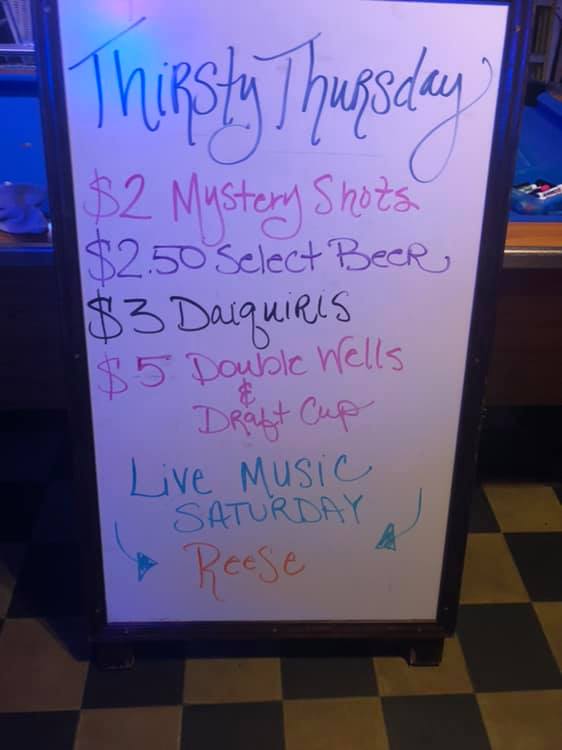 Thirsty Thursday
$2 Mystery Shots
$2.50 Select Beer
$3 Daiquiris
$5 Double Wells
&
Draft Cup
Live Music
SATURDAY
Reese